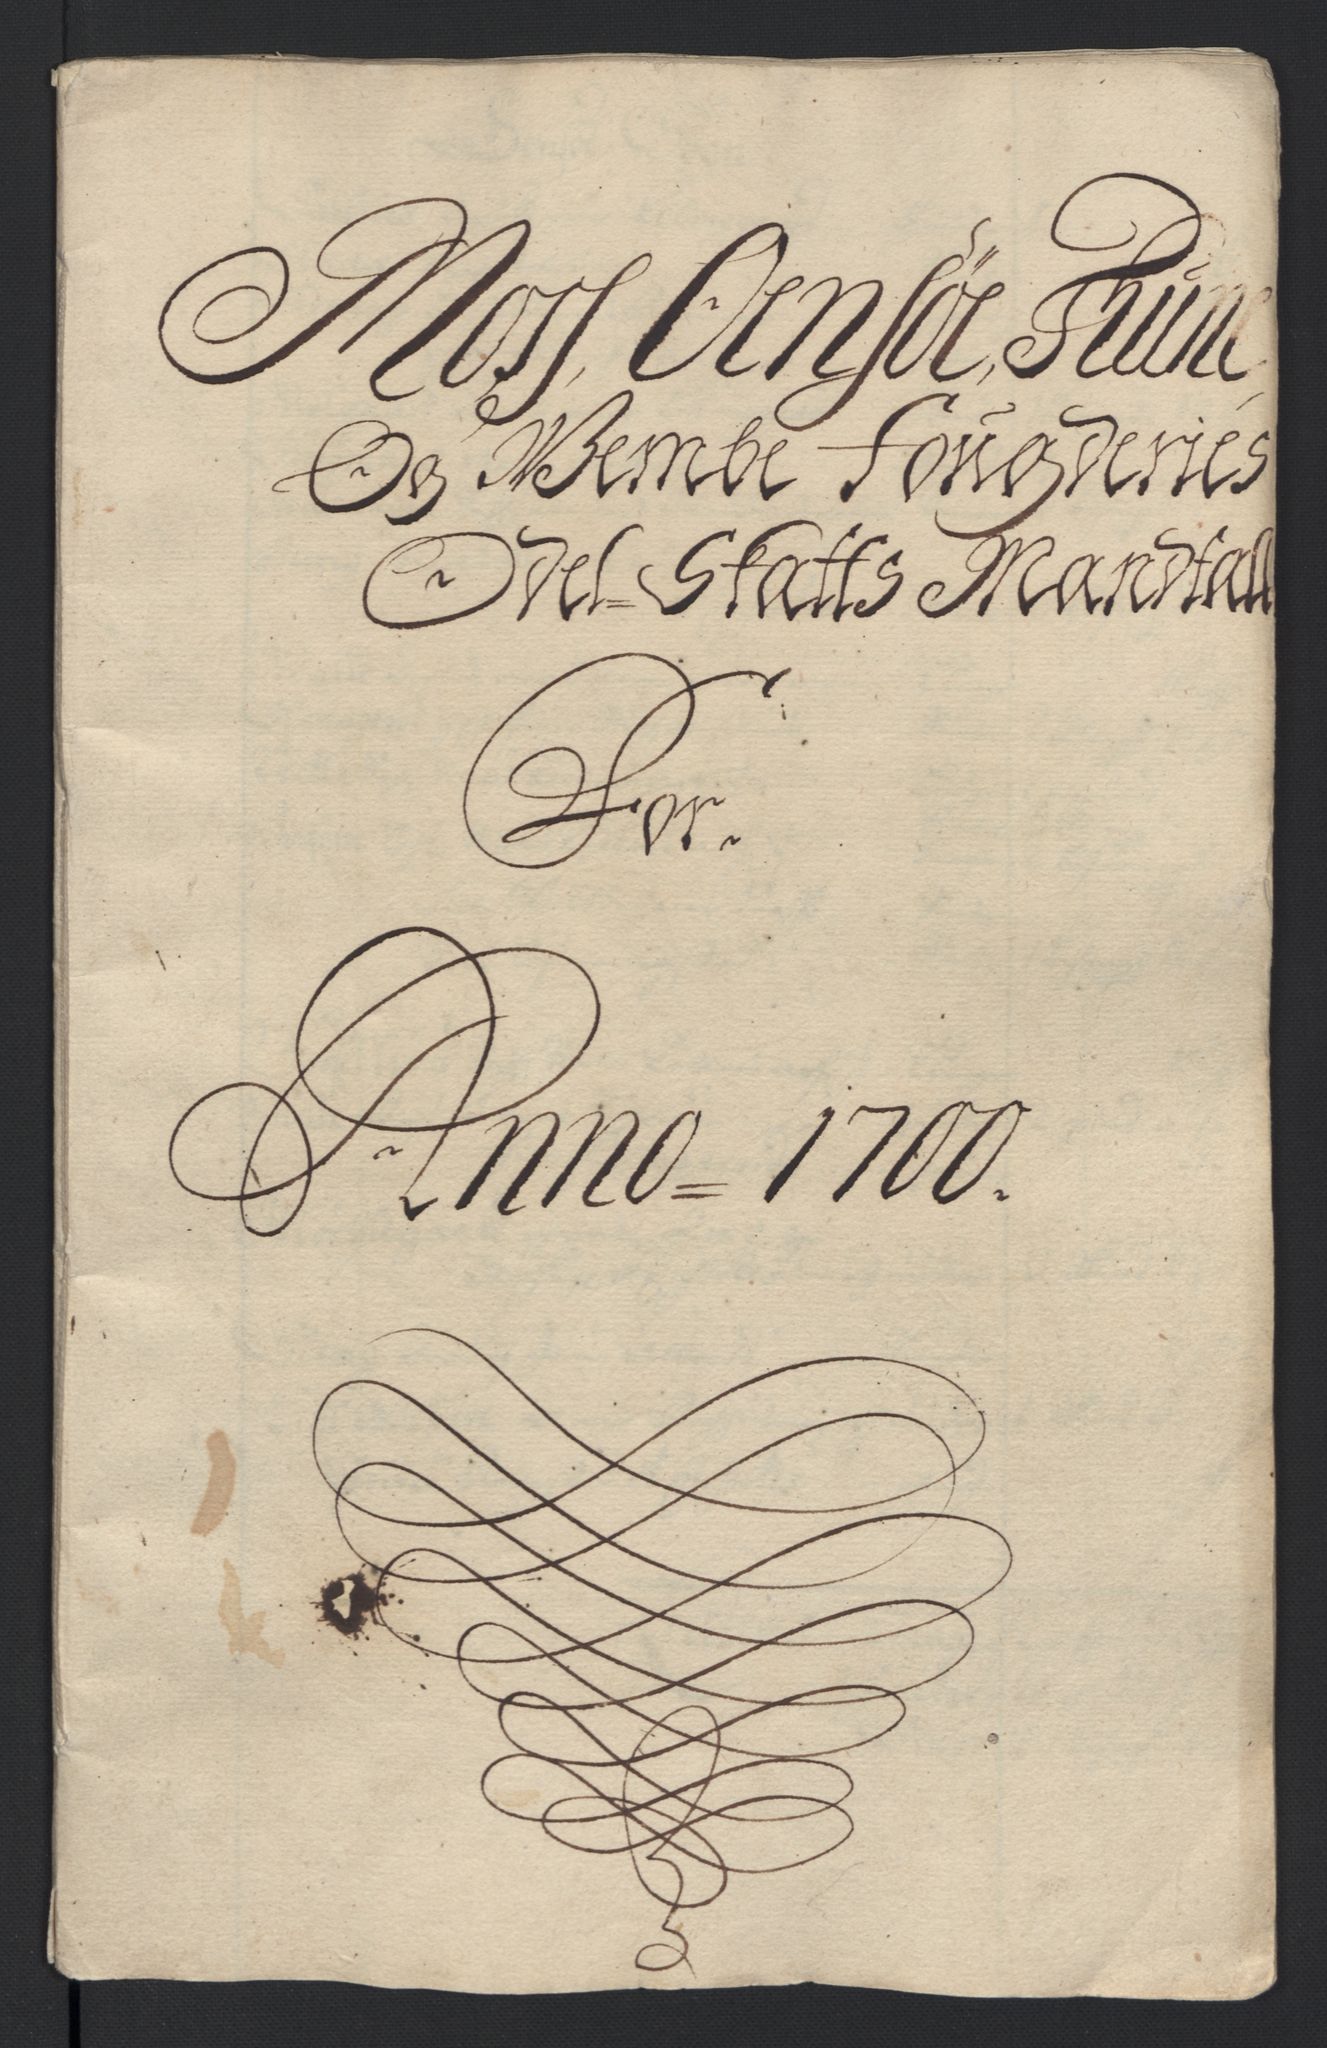 Moss, Oensöe, Thune,
Og Wembe Fougderies
Odel=Skatts Mandtall
For.
Anno= 1700.